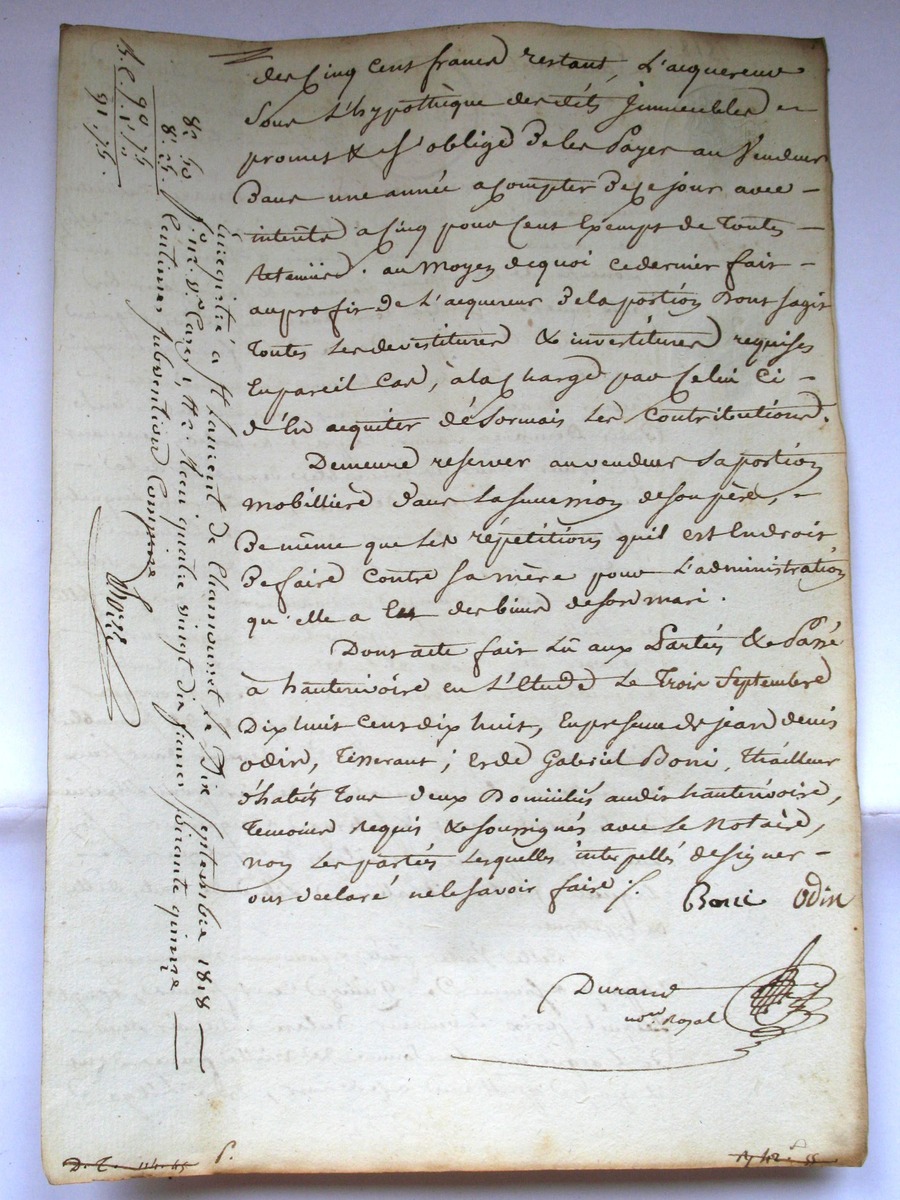 des Cinq Cens francs restant, L'acquereur
sous L'hypothèque des dits Jmmeubles a
promis & s'obligé de les Payer au Vendeur
dans une année a Compter de Ce jour avec
interêts a Cinq pour Cent Exempts de Toutes
Retenües. au Moyen de quoi ce dernier fait
au profit de L'acquereur de la portion Dont s'agit
Toutes Les devestitures & investitures requises
En pareil Cas, à la Charge par Celui Ci
d'En acquiter désormais Les Contributions.
Demeure reservér au vendeur Sa portion
mobilliere dans La succession de son père,
de même que Les répétitions qu'il est En droit
de faire Contre sa mère pour L'administration
qu'elle a Eu des biens de son mari.
Dont acte fait Lû aux Parties & Passé
à hauterivoire en L'Etude Le Trois Septembre
Dix huit Cens dix huit, En presence de jean denis
odin, Tisserant; et de Gabriel Boni, Thailleur
d'habits Tous deux Domiciliés au dit hauterivoire,
Temoins Requis & soussignés avec Le Notaire,
non Les parties Lesquelles interpellés de signer
ont declaré ne le savoir faire /.
Boni Odin
Durand
no.re Royal
Enregistré à St Laurent de Chamousset le Dix septembre 1818
f.o
Cases
Reçu quatre vingt dix francs soixante quinze
Centimes subvention Comprise
90. 75
91. 75.